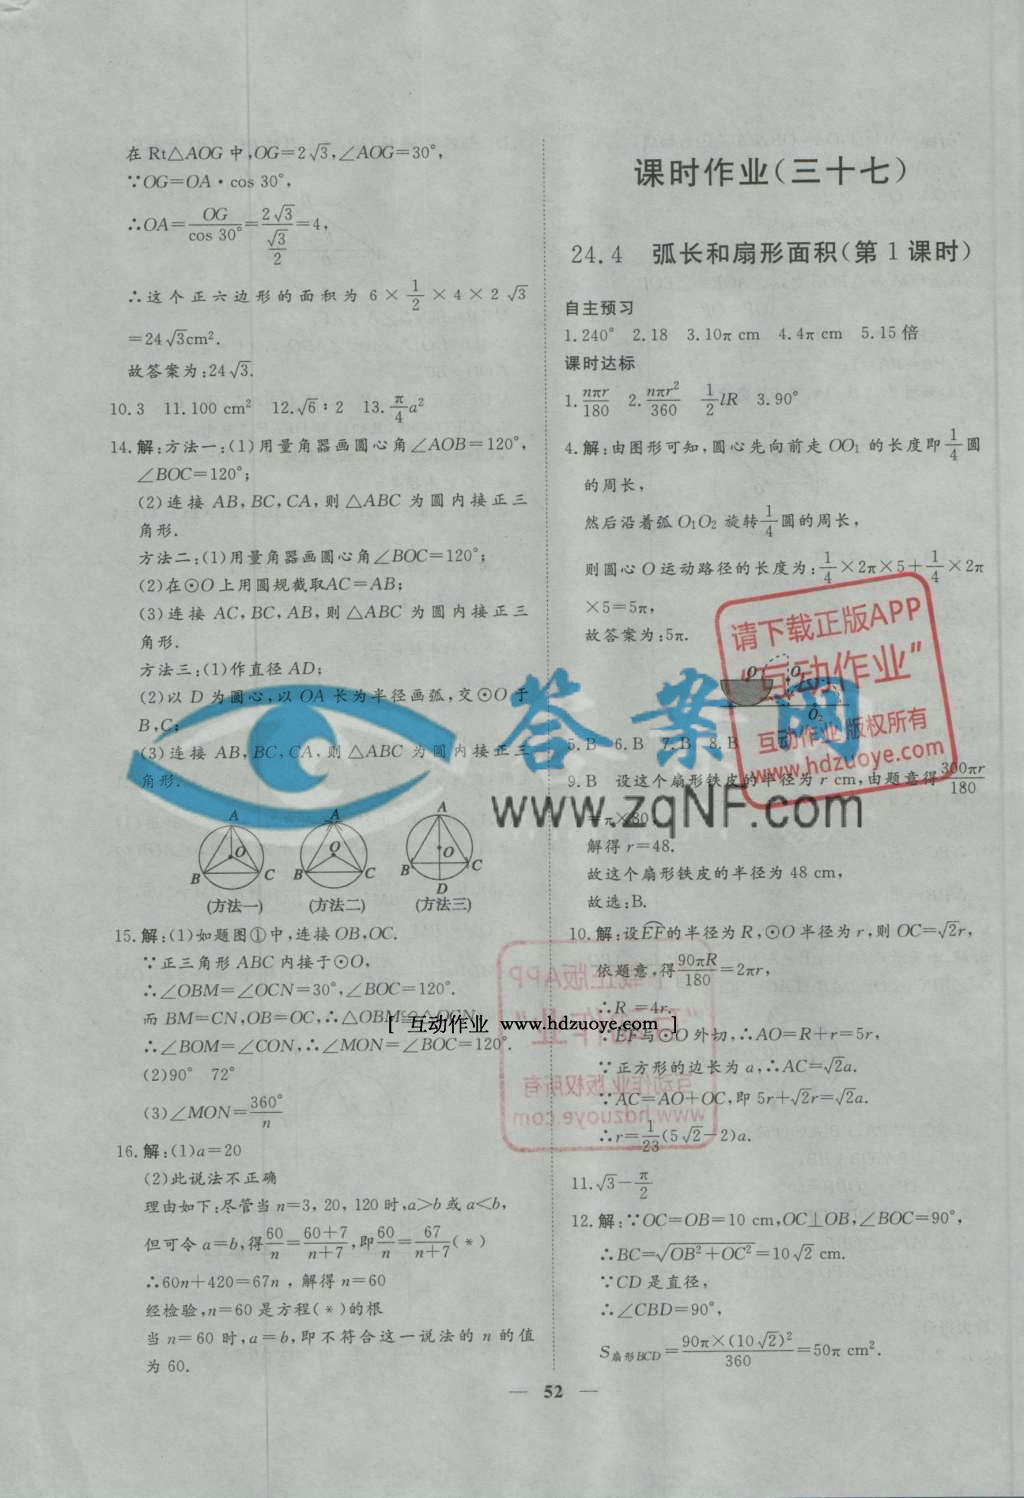 在 Rt△AOG 中,OG=2√3,∠AOG=30°,
∵OG=OA·cos 30°,
∴OA=OG/cos 30°=2√3/(√3/2)=4,
∴这个正六边形的面积为 6×1/2×4×2√3
=24√3cm².
故答案为:24√3.
10.3 11.100 cm² 12.√6∶2 13.π/4a²
14.解:方法一:(1)用量角器画圆心角∠AOB=120°,
∠BOC=120°;
(2)连接 AB,BC,CA,则△ABC 为圆内接正三
角形.
方法二:(1)用量角器画圆心角∠BOC=120°;
(2)在⊙O上用圆规截取AC=AB;
(3)连接 AC,BC,AB,则△ABC 为圆内接正三
角形.
方法三:(1)作直径 AD;
(2)以 D 为圆心,以 OA 长为半径画弧,交⊙O 于
B,C;
(3)连接 AB,BC,CA,则△ABC 为圆内接正三
角形.
A A A
O O O
B C B C B C
D
(方法一) (方法二) (方法三)
15.解:(1)如题图①中,连接 OB,OC.
∵正三角形 ABC 内接于⊙O,
∴∠OBM=∠OCN=30°,∠BOC=120°.
而 BM=CN,OB=OC,∴△OBM≌△OCN
∴∠BOM=∠CON,∴∠MON=∠BOC=120°.
(2)90° 72°
(3)∠MON=360°/n
16.解:(1)a=20
(2)此说法不正确
理由如下:尽管当 n=3, 20, 120 时,a>b 或 a<b,
但可令 a=b,得60/n=60+7/n+7,即60/n=67/n+7(*)
∴60n+420=67n,解得 n=60
经检验,n=60 是方程(*)的根
当 n=60 时,a=b,即不符合这一说法的 n 的值
为 60.
课时作业(三十七)
24.4 弧长和扇形面积(第 1 课时)
自主预习
1.240° 2.18 3.10π cm 4.4π cm 5.15 倍
课时达标
1.nπr/180 2.nπr²/360 1/2lR 3.90°
4.解:由图形可知,圆心先向前走 OO₁ 的长度即1/4圆
的周长,
然后沿着弧 O₁O₂ 旋转1/4圆的周长,
则圆心 O 运动路径的长度为:1/4×2π×5+1/4×2π
×5=5π,
故答案为:5π.
O O₁ O₂
5.B 6.B 7.B 8.B
9.B 设这个扇形铁皮的半径为 r cm,由题意得300πr/180
=π×80
解得 r=48.
故这个扇形铁皮的半径为 48 cm,
故选:B.
10.解:设EF的半径为 R,⊙O 半径为 r,则 OC=√2r,
依题意,得90πR/180=2πr,
∴R=4r.
∵EF与⊙O 外切,∴AO=R+r=5r,
∵正方形的边长为 a,∴AC=√2a.
∵AC=AO+OC,即 5r+√2r=√2a.
∴r=1/23(5√2-2)a.
11.√3-π/2
12.解:∵OC=OB=10 cm,OC⊥OB,∠BOC=90°,
∴BC=√(OB²+OC²)=10√2 cm.
∵CD 是直径,
∴∠CBD=90°,
S扇形BCD=90π×(10√2)²/360=50π cm².
— 52 —
答案网
www.zqNF.com
请下载正版APP
“互动作业”
互动作业版权所有
www.hdzuoye.com
[ 互动作业 www.hdzuoye.com ]